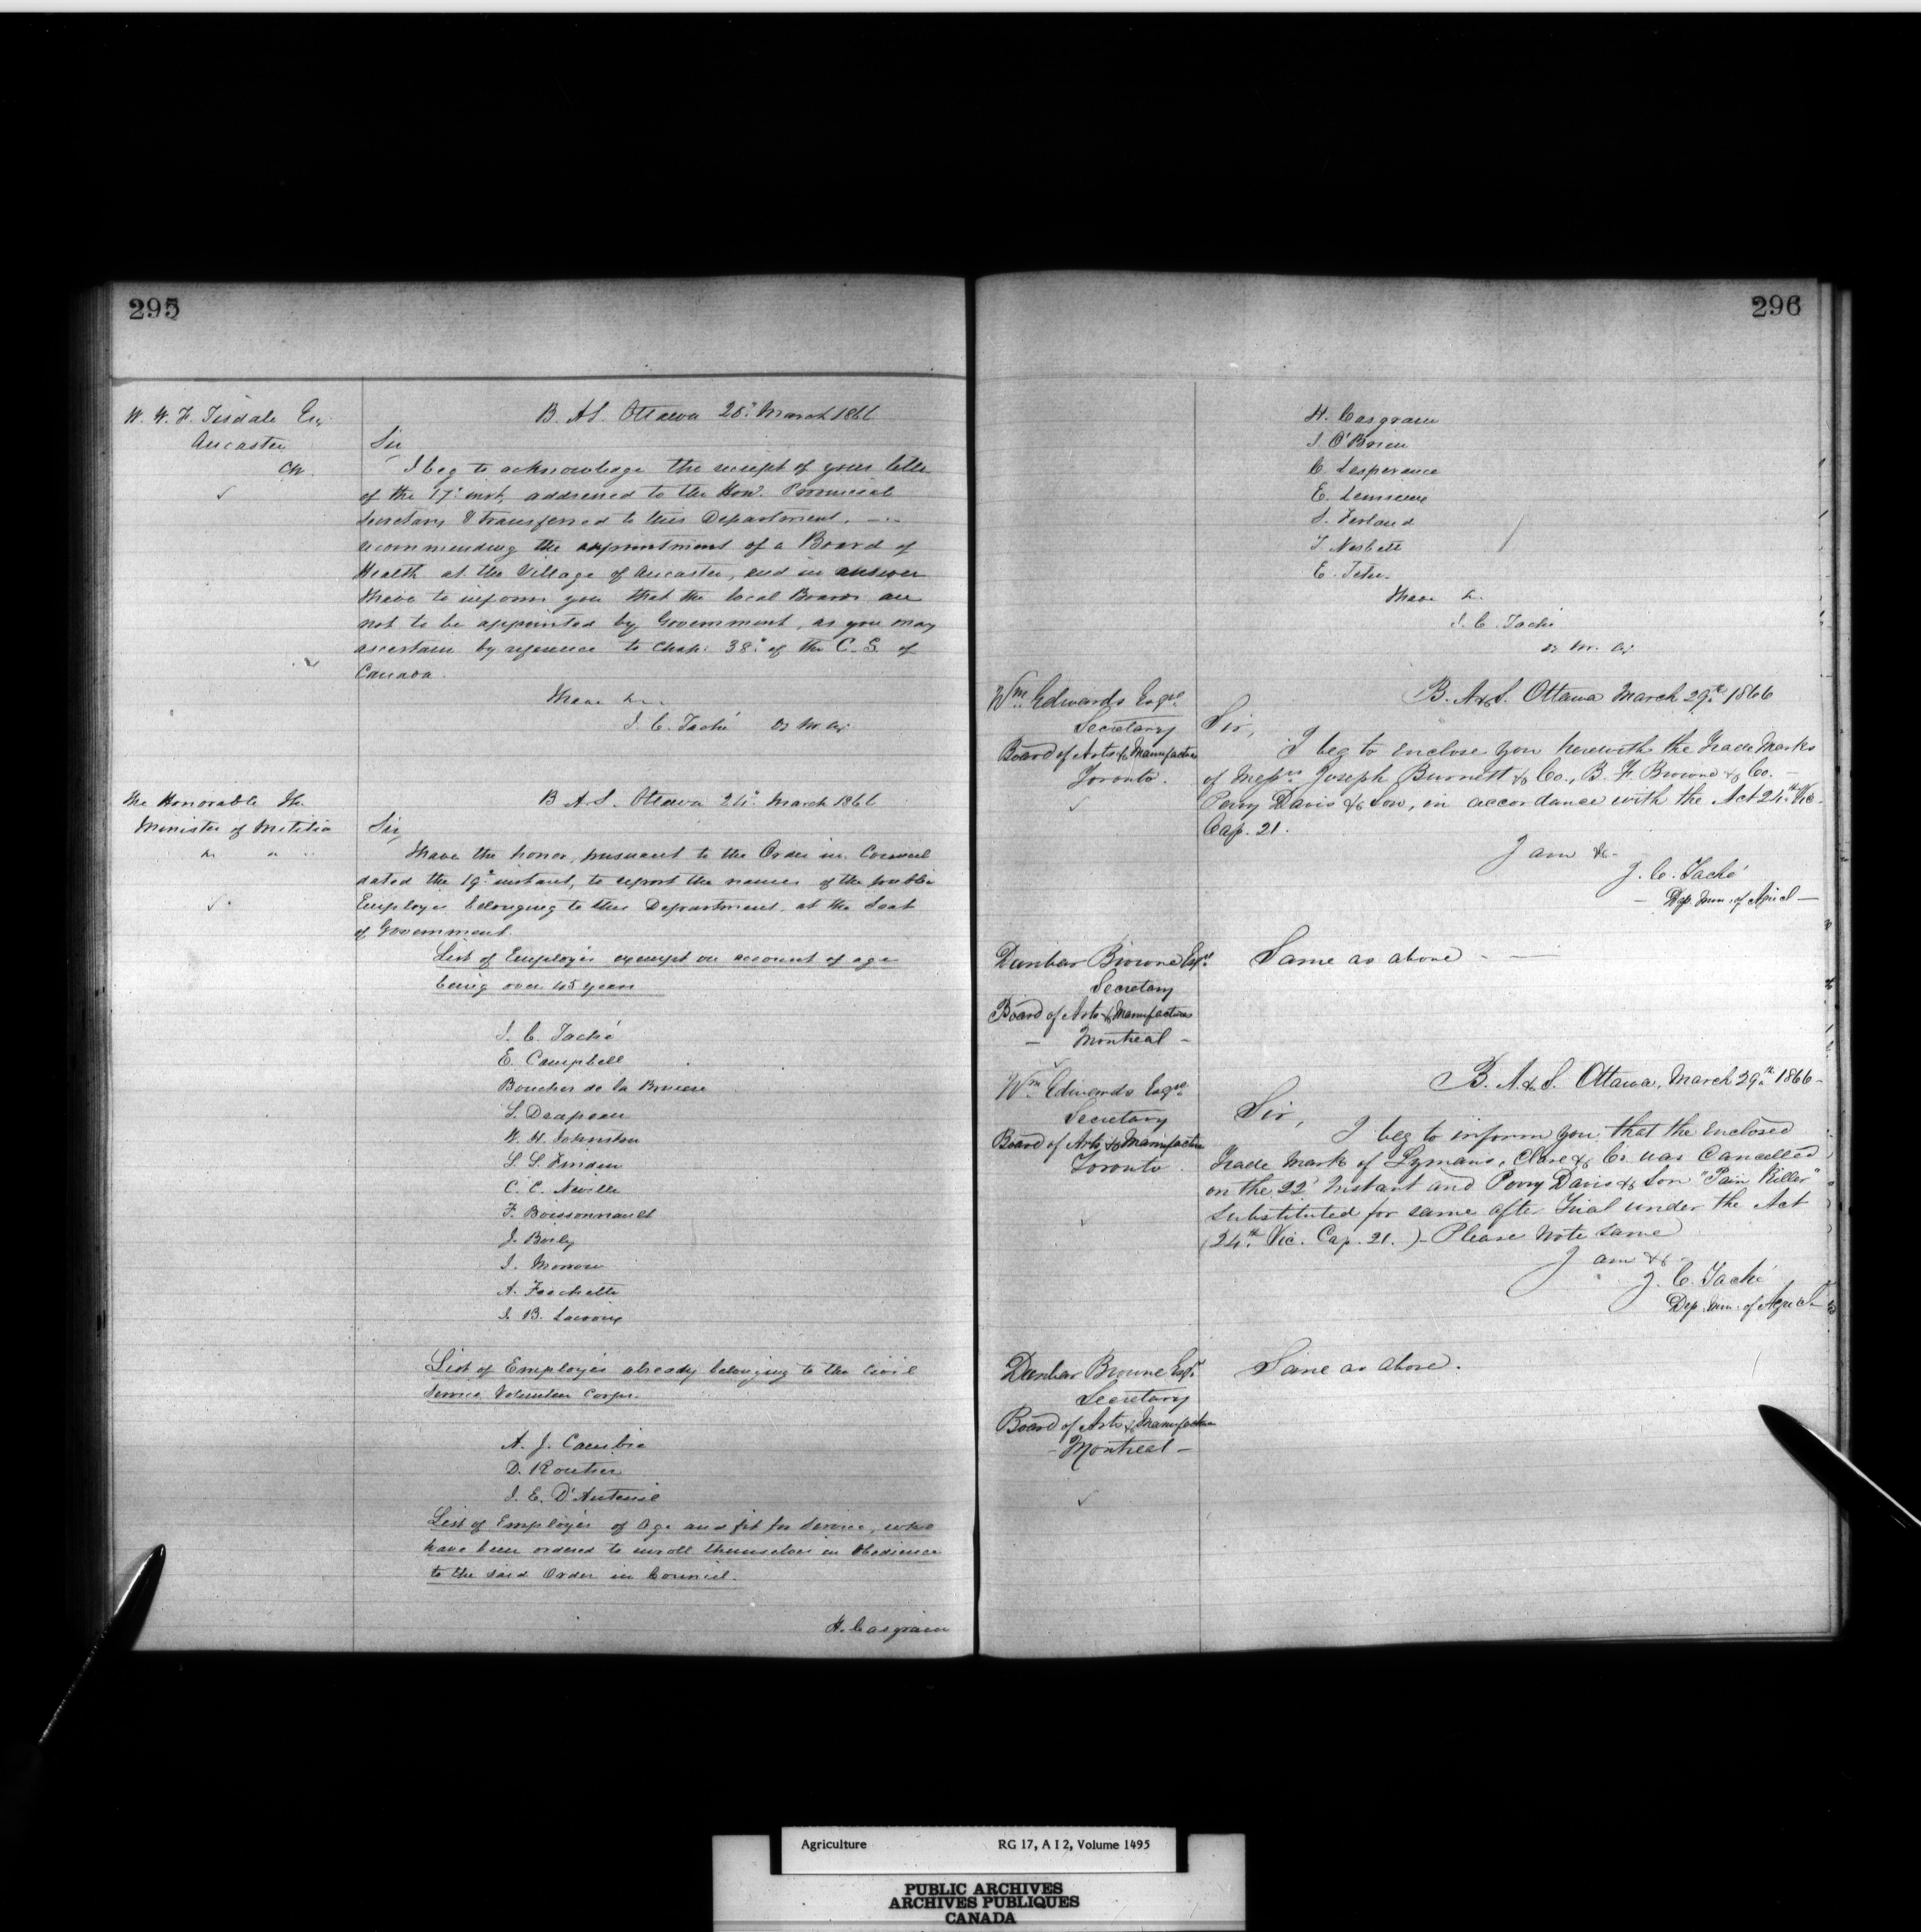 295
W. W. F. Tisdale Esq.
Ancaster
CW.
B. A&S. Ottawa 20th March 1866
Sir
I beg to acknowledge the receipt of your letter
of the 17th inst, addressed to the Hon. Provincial
Secretary & transferred to this Department,
recommending the appointment of a Board of
Health at the Village of Ancaster, and in answer
I have to inform you that the local Boards are
not to be appointed by Government, as you may
ascertain by reference to Chap: 38 of the C. S. of
Canada.
I have &c.
J. C. Taché D. M. Ag.
The Honorable The
Minister of Militia
&c
B. A&S. Ottawa March 1866
Sir,
I have the honor, pursuant to the Order in Council
dated the 19th instant, to report the names of the public
Employés belonging to this Department, at the Seat
of Government.
List of Employés exempt on account of age
being over 45 years
J. C. Taché
E. Campbell
Boucher de la Bruere
S. Drapeau
W. H. Johnston
C. C. Neville
F. Boissonnault
J. Baily
J. Morrow
A. Frechette
J. B. Lacroix
List of Employés already belonging to the Civil
Service Volunteer Corps.
A. J. Cambie
D. Routier
J. E. D'Auteuil
List of Employés of Age and fit for Service, who
have been ordered to enroll themselves in Obedience
to the said Order in Council.
H. Casgrain
296
H. Casgrain
J. O'Brien
C. Lesperance
E. Lemieux
J. Ferland
T. Nesbett
E. Tetu.
I have &c.
J. C. Taché
D. M. Ag.
Wm. Edwards Esqre.
Secretary
Board of Arts & Manufactures
Toronto.
B. A&S. Ottawa March 29th 1866
Sir,
I beg to enclose you herewith the Trade Marks
of Messrs Joseph Burnett & Co., B. F. Browne & Co. -
Perry Davis & Son, in accordance with the Act 24th Vic.
Cap. 21.
I am &c.
J. C. Taché
- Dep. Min. of Agricl -
Dunbar Browne Esqre.
Secretary
Board of Arts & Manufactures
- Montreal -
Same as above - -
Wm. Edwards Esqre.
Secretary
Board of Arts & Manufactures
Toronto.
B. A&S. Ottawa, March 29th 1866 -
Sir,
I beg to inform you that the enclosed
Trade Mark of Lymans, Clare & Co. was Cancelled
on the 22d Instant and Perry Davis & Son "Pain Killer"
substituted for same after Trial under the Act
(24th Vic. Cap. 21.) - Please Note same
I am &c
J. C. Taché
Dep. Min. of Agricl
Dunbar Browne Esqr.
Secretary
Board of Arts & Manufactures
- Montreal -
Same as above.
Agriculture RG 17, A I 2, Volume 1495
PUBLIC ARCHIVES
ARCHIVES PUBLIQUES
CANADA